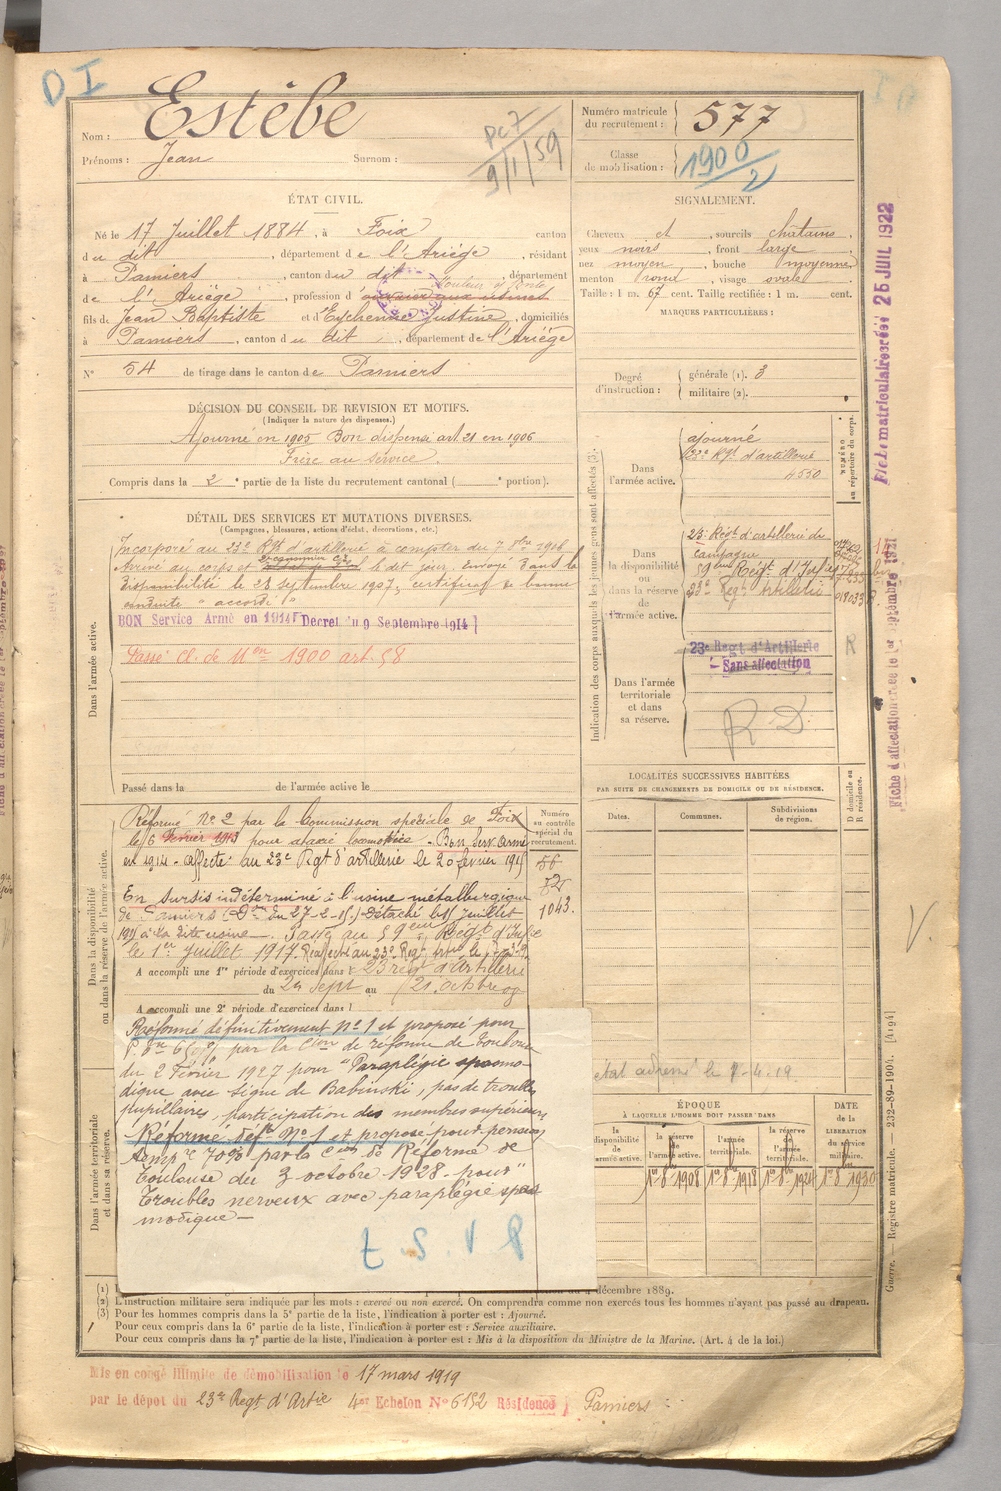 D I
Nom : Estèbe
Prénoms : Jean Surnom :
PC 7
9/1/59
Numéro matricule du recrutement : 577
Classe de mobilisation : 1900/2
ÉTAT CIVIL.
Né le 17 Juillet 1884, à Foix canton
du dit, département de l'Ariège, résidant
à Pamiers, canton du dit, département
de l'Ariège, profession d'ouvrier aux usines
fils de Jean Baptiste et d'Eychenne Justine, domiciliés
à Pamiers, canton du dit, département de l'Ariège
N° 54 de tirage dans le canton de Pamiers
SIGNALEMENT.
Cheveux et, sourcils chatains.
yeux noirs, front large
nez moyen, bouche moyenne
menton rond, visage ovale
Taille : 1 m. 67 cent. Taille rectifiée : 1 m. cent.
MARQUES PARTICULIÈRES :
Degré d'instruction : générale (1). 3
militaire (2).
DÉCISION DU CONSEIL DE REVISION ET MOTIFS.
(Indiquer la nature des dispenses.)
Ajourné en 1905 Bon dispensé art. 21 en 1906
au service
Compris dans la 2e partie de la liste du recrutement cantonal ( e portion).
DÉTAIL DES SERVICES ET MUTATIONS DIVERSES.
(Campagnes, blessures, actions d'éclat, décorations, etc.)
Incorporé au 23e Rgt d'artillerie à compter du 7 8bre 1906
Arrivé au corps et le dit jour, Envoyé dans la
disponibilité le 28 septembre 1907, certificat de bonne
conduite "accordé"
BON Service Armé en 1914 Décret du 9 Septembre 1914
Passé cl. de Mon 1900 art. 58
Dans l'armée active.
Passé dans la de l'armée active le
Indication des corps auxquels les jeunes gens sont affectés (3).
NUMÉRO au répertoire du corps.
Dans l'armée active.
ajourné
23e Rgt d'artillerie
4550
Dans la disponibilité ou dans la réserve de l'armée active.
23e Régt d'artillerie de
campagne
59ème Régt d'Infie
23e Regt Artillerie 018033
23e Regt d'Artillerie
Sans affectation
R
Dans l'armée territoriale et dans sa réserve.
R. D.
Fiche matriculaire créée 25 JUIL 1922
Fiche d'affectation créée le 1er septembre 1921
LOCALITÉS SUCCESSIVES HABITÉES
PAR SUITE DE CHANGEMENTS DE DOMICILE OU DE RÉSIDENCE.
Dates. Communes. Subdivisions de région. D domicile ou R résidence.
Numéro au contrôle spécial du recrutement.
56
1043.
Dans la disponibilité ou dans la réserve de l'armée active.
Réformé N° 2 par la Commission spéciale de Foix
le 6 Février 1913 pour ataxie locomotrice - Bon Serv armé
en 1914 - affecté au 23e Rgt d'artillerie le 20 février 1915
En sursis indéterminé à l'usine métallurgique
de Pamiers (Don du 27-2-15) Détaché le 15 Juillet
Passé au 59ème Régt d'Infie
le 1er Juillet 1917. Réaffecté au 23e Regt
A accompli une 1re période d'exercices dans le 23 regt d'Artillerie
du 24 Sept au 21 octobre 09
A accompli une 2e période d'exercices dans l
Réformé définitivement N° 1 et proposé pour
par la Con de réforme de Toulouse
du 2 Février 1927 pour "Paraplégie spasmo-
dique avec signe de Babinski, pas de troubles
pupillaires, participation des membres supérieurs
Réformé défve N° 1 et proposé pour pension
temp re 70% par la Con de Réforme de
Toulouse du 3 octobre 1928 pour"
Troubles nerveux avec paraplégie spas-
modique -
Dans l'armée territoriale et dans sa réserve.
état adressé le 9.4.19.
ÉPOQUE
À LAQUELLE L'HOMME DOIT PASSER DANS
la disponibilité de l'armée active. la réserve de l'armée active. l'armée territoriale. la réserve de l'armée territoriale. DATE de la LIBÉRATION du service militaire.
1er 8e 1908 1er 8e 1918 1er 8e 1924 1er 8e 1930
V.
décembre 1889.
(2) L'instruction militaire sera indiquée par les mots : exercé ou non exercé. On comprendra comme non exercés tous les hommes n'ayant pas passé au drapeau.
(3) Pour les hommes compris dans la 5e partie de la liste, l'indication à porter est : Ajourné.
Pour ceux compris dans la 6e partie de la liste, l'indication à porter est : Service auxiliaire.
Pour ceux compris dans la 7e partie de la liste, l'indication à porter est : Mis à la disposition du Ministre de la Marine. (Art. 4 de la loi.)
Guerre. — Registre matricule. — 232-89-1904. [4194]
Mis en congé illimité de démobilisation le 17 mars 1919
par le dépot du 23e Regt d'Artie 4er Echelon N° 6152 Résidence } Pamiers